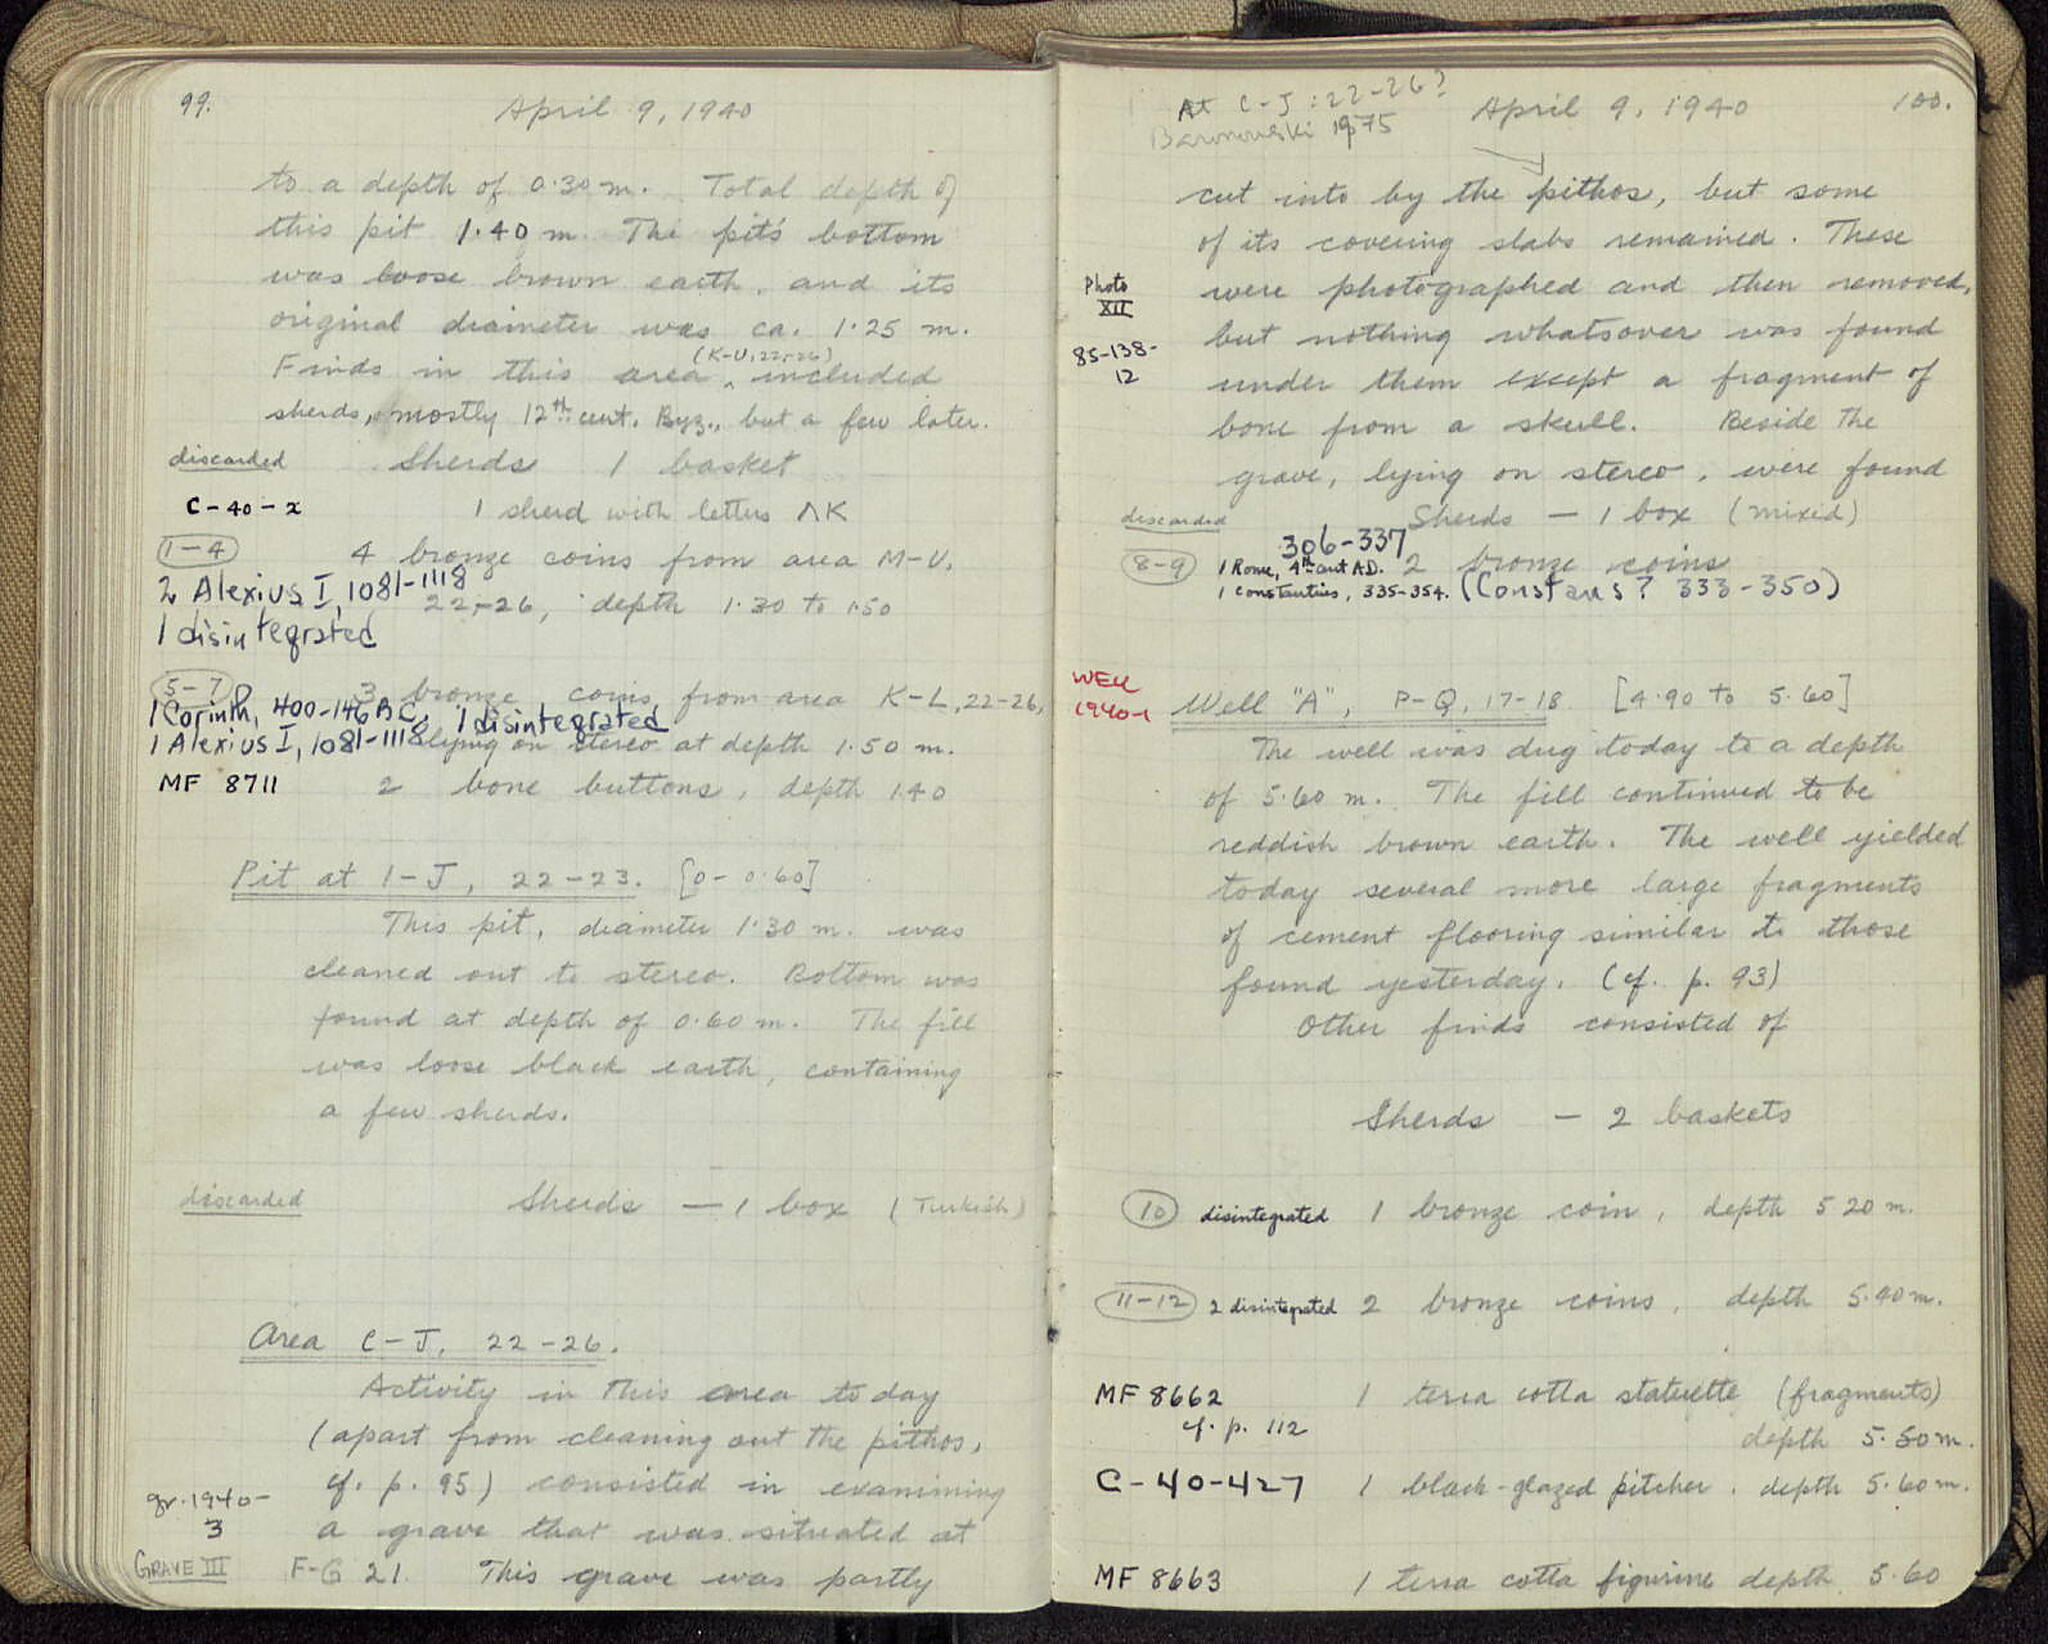 99.
April 9, 1940
to a depth of 0.30 m. Total depth of
this pit 1.40 m. The pit's bottom
was loose brown earth, and its
original diameter was ca. 1.25 m.
(K-U, 22-26)
Finds in this area ‸ included
sherds, mostly 12th cent. Byz., but a few later.
discarded Sherds 1 basket
C-40-x 1 sherd with letters ΛK
1-4 4 bronze coins from area M-U,
2 Alexius I, 1081-1118
22-26, depth 1.30 to 1.50
1 disintegrated
5-7 3 bronze coins from area K-L, 22-26,
1 Corinth, 400-146 B.C., 1 disintegrated
1 Alexius I, 1081-1118 lying on stereo at depth 1.50 m.
MF 8711 2 bone buttons, depth 1.40
Pit at I-J, 22-23. [0-0.60]
This pit, diameter 1.30 m. was
cleaned out to stereo. Bottom was
found at depth of 0.60 m. The fill
was loose black earth, containing
a few sherds.
discarded Sherds — 1 box (Turkish)
Area C-J, 22-26.
Activity in this area today
(apart from cleaning out the pithos,
cf. p. 95) consisted in examining
gr. 1940-
3 a grave that was situated at
GRAVE III F-G 21. This grave was partly
At C-J: 22-26?
Baronowski 1975
April 9, 1940
100.
cut into by the pithos, but some
of its covering slabs remained. These
Photo
XII
were photographed and then removed,
but nothing whatsover was found
85-138-
12
under them except a fragment of
bone from a skull. Beside the
grave, lying on stereo, were found
discarded Sherds — 1 box (mixed)
306-337
8-9 1 Rome, 4th cent A.D. 2 bronze coins
1 Constantius, 335-354. (Constans? 333-350)
WELL
1940-1
Well "A", P-Q, 17-18 [4.90 to 5.60]
The well was dug today to a depth
of 5.60 m. The fill continued to be
reddish brown earth. The well yielded
today several more large fragments
of cement flooring similar to those
found yesterday. (cf. p. 93)
Other finds consisted of
Sherds — 2 baskets
10 disintegrated 1 bronze coin, depth 5.20 m.
11-12 2 disintegrated 2 bronze coins, depth 5.40 m.
MF 8662 1 terra cotta statuette (fragments)
cf. p. 112
depth 5.50 m.
C-40-427 1 black-glazed pitcher. depth 5.60 m.
MF 8663 1 terra cotta figurine depth 5.60